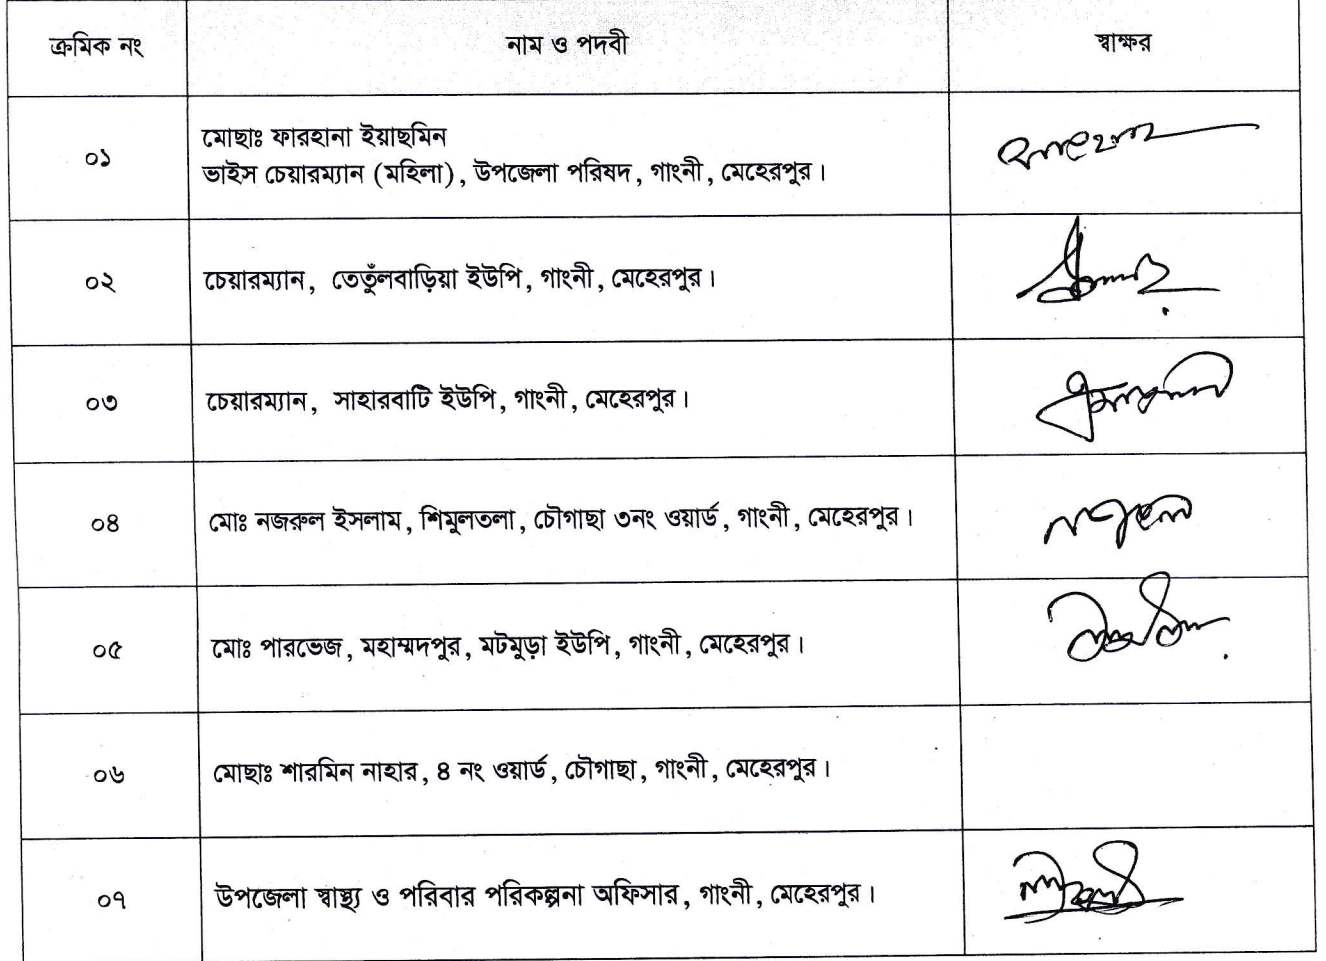 ক্রমিক নং নাম ও পদবী স্বাক্ষর
০১ মোছাঃ ফারহানা ইয়াছমিন
ভাইস চেয়ারম্যান (মহিলা), উপজেলা পরিষদ, গাংনী, মেহেরপুর।
০২ চেয়ারম্যান, তেতুঁলবাড়িয়া ইউপি, গাংনী, মেহেরপুর।
০৩ চেয়ারম্যান, সাহারবাটি ইউপি, গাংনী, মেহেরপুর।
০৪ মোঃ নজরুল ইসলাম, শিমুলতলা, চৌগাছা ৩নং ওয়ার্ড, গাংনী, মেহেরপুর।
০৫ মোঃ পারভেজ, মহাম্মদপুর, মটমুড়া ইউপি, গাংনী, মেহেরপুর।
০৬ মোছাঃ শারমিন নাহার, ৪ নং ওয়ার্ড, চৌগাছা, গাংনী, মেহেরপুর।
০৭ উপজেলা স্বাস্থ্য ও পরিবার পরিকল্পনা অফিসার, গাংনী, মেহেরপুর।